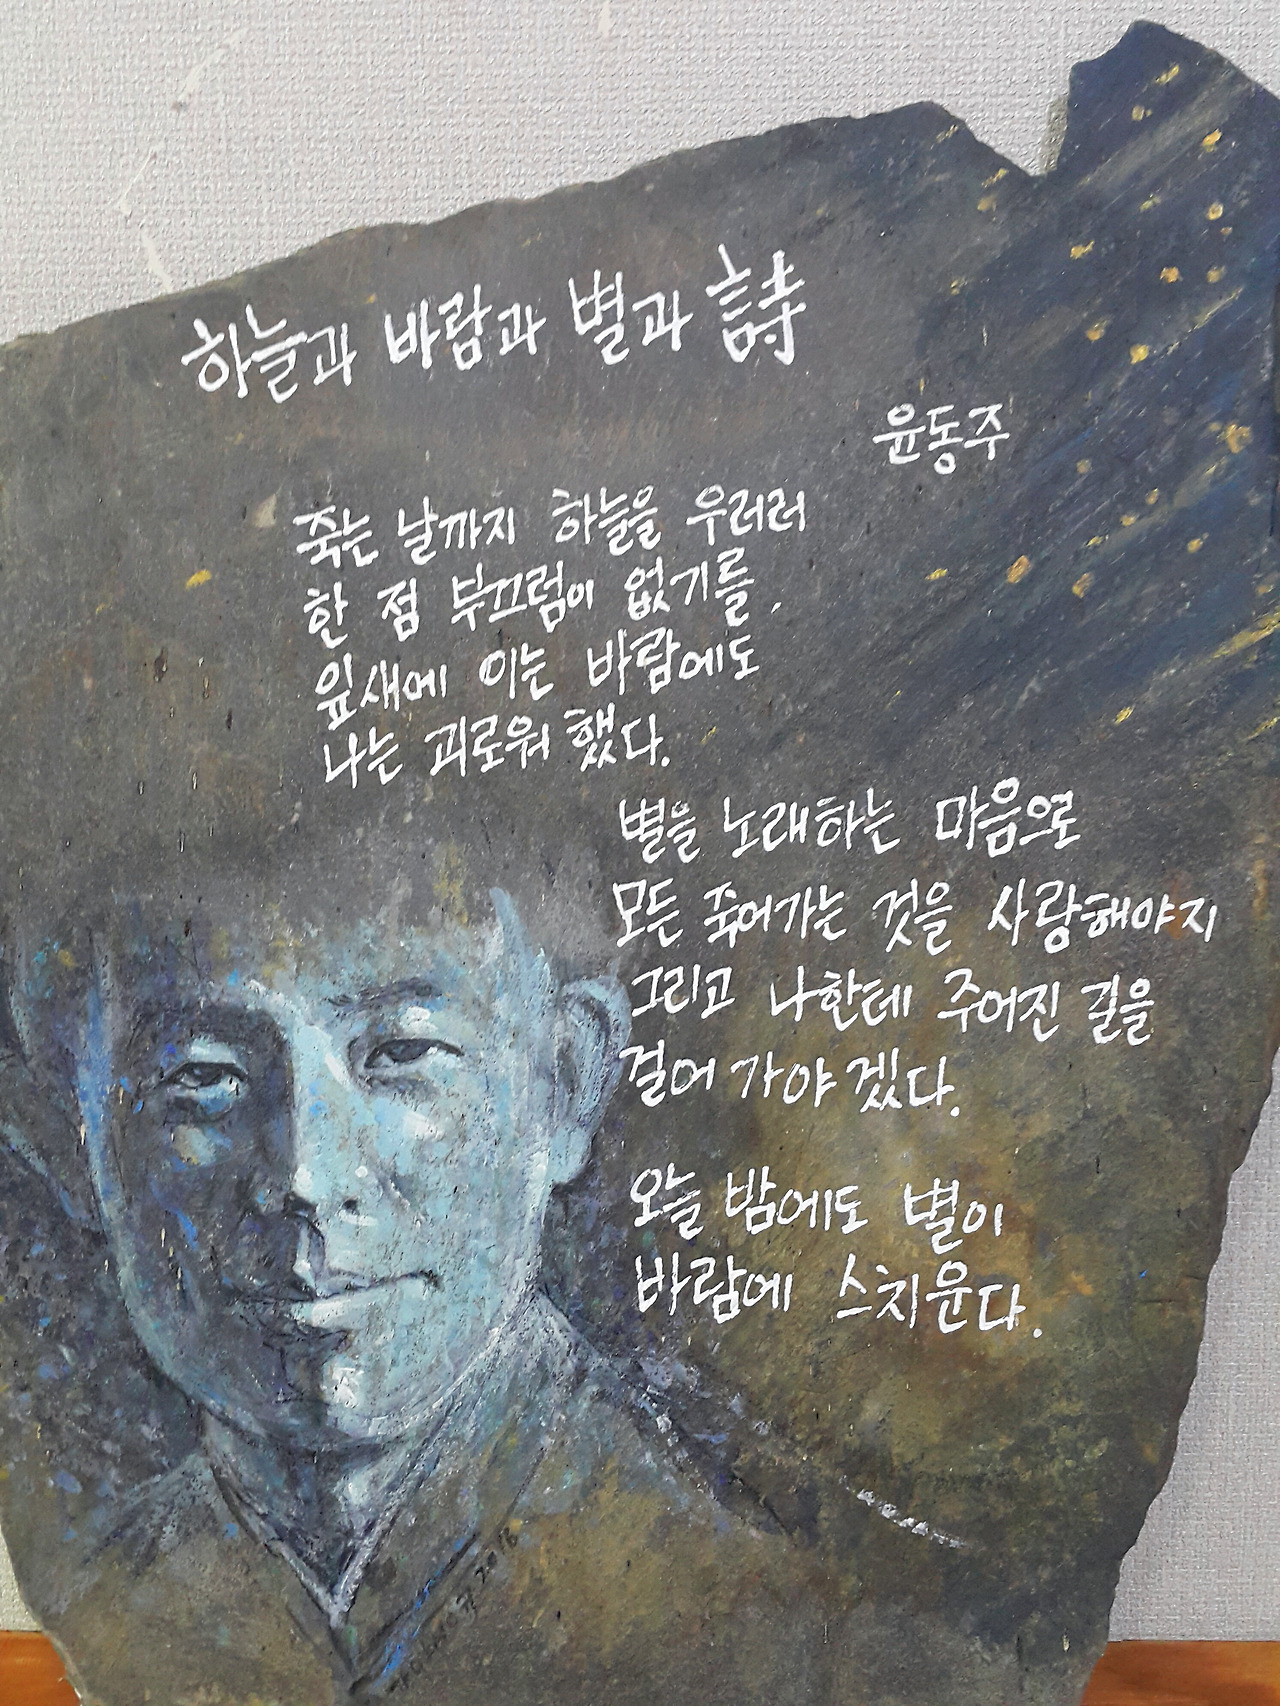 하늘과 바람과 별과 詩
윤동주
죽는 날까지 하늘을 우러러
한 점 부끄럼이 없기를,
잎새에 이는 바람에도
나는 괴로워 했다.
별을 노래하는 마음으로
모든 죽어가는 것을 사랑해야지
그리고 나한테 주어진 길을
걸어 가야 겠다.
오늘 밤에도 별이
바람에 스치운다.
2018